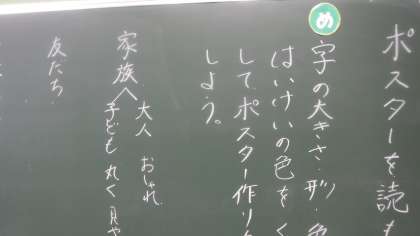 ポスターを読も
め
字の大きさ・形・色
はいけいの色をく
して、ポスター作り
しよう。
家族へ 大人 おしゃれ
子ども 丸く 見や
友だち